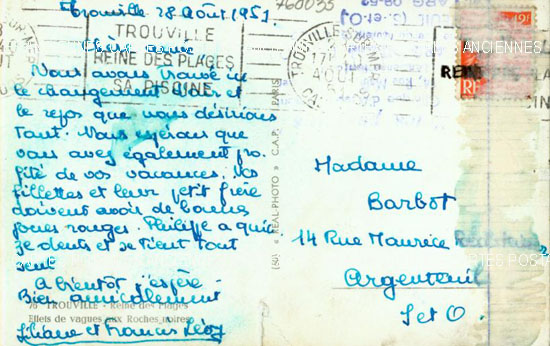 Trouville 28 Août 1951.
760035
TROUVILLE
REINE DES PLAGES
SA PISCINE
Nous avons trouvé ici
le changement d'air et
le repos que nous désirions
tant. Nous espérons que
vous avez également pro-
fité de vos vacances. Vos
fillettes et leur petit frère
doivent avoir de bonnes
joues rouges. Philippe a quin-
ze dents et se tient tout
seul
A bientôt j'espère
Bien amicalement
76 TROUVILLE - Reine des Plages
Effets de vagues aux Roches noires
Liliane et Francis
(30) « REAL-PHOTO » C.A.P. PARIS
TROUVILLE
AOUT
51
ANCIENNES
RF
Madame
Barbot
14 Rue Maurice
Argenteuil
S et O.